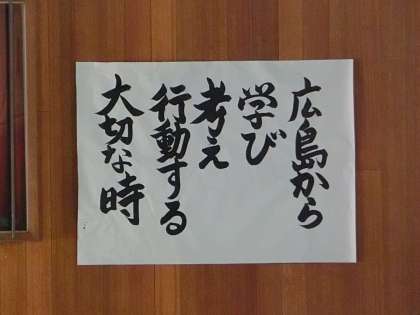 広島から
学び
考え
行動する
大切な時